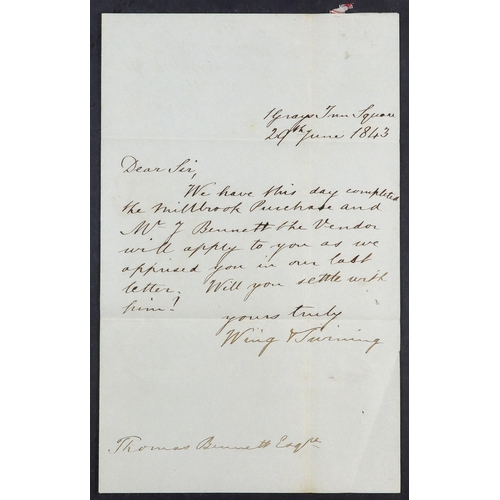 1 Grays Inn Square
29th June 1843
Dear Sir,
We have this day completed
the Millbrook Purchase and
Mr J Bennett the Vendor
will apply to you as we
apprised you in our last
letter. Will you settle with
him!
yours truly
Wing & Twining
Thomas Bennett Esqre